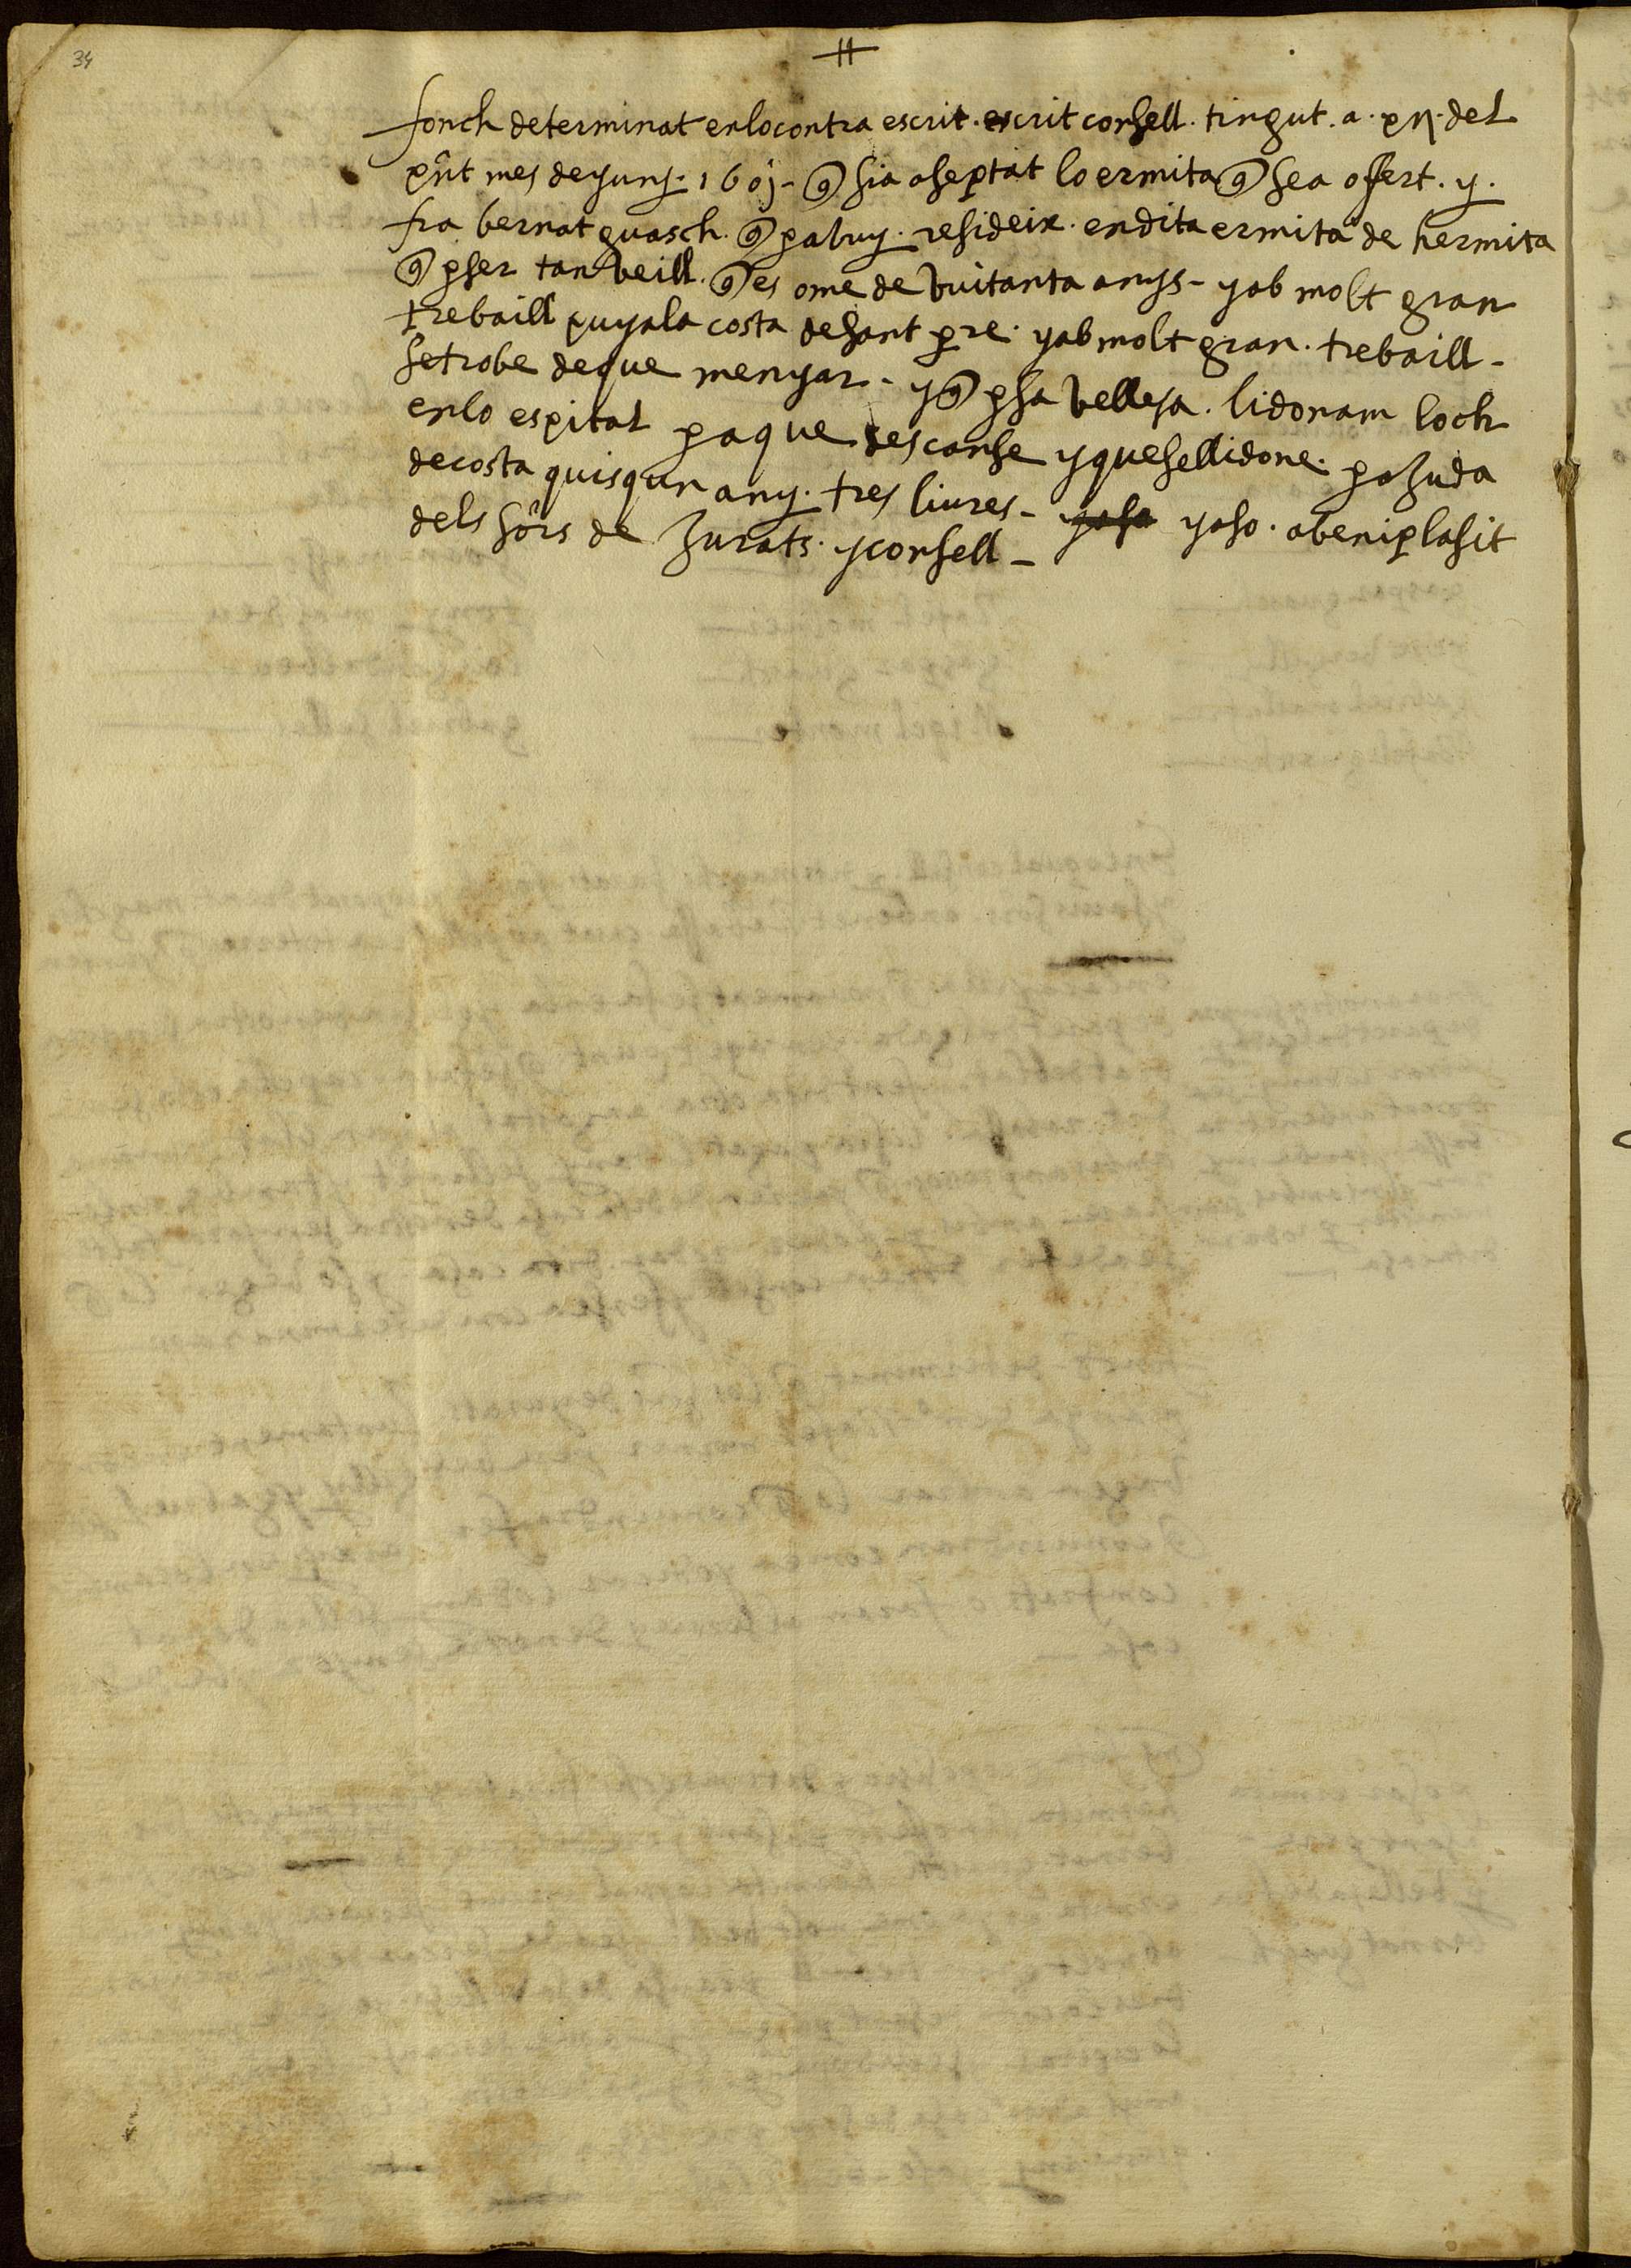 34
fonch determinat en lo contra escrit . escrit consell . tingut . a . xij . del
pñt mes de juny . 1601 - q̃ sia aseptat lo ermita q̃ sea ofert . y .
fra bernat guasch . q̃ p avuy . resideix . en dita ermita de hermita
q̃ p ser tan veill . q̃ es ome de vuitanta anys - y ab molt gran
trebaill puya la costa de sant pre . y ab molt gran . trebaill -
se trobe de que menyar - y q̃ p sa vellesa . li donam loch
en lo espital pa que descanse y que se lli done . p ajuda
de costa quisqun any . tres liures - yaso yaso . a beniplasit
dels sõrs de Jurats . y consell -